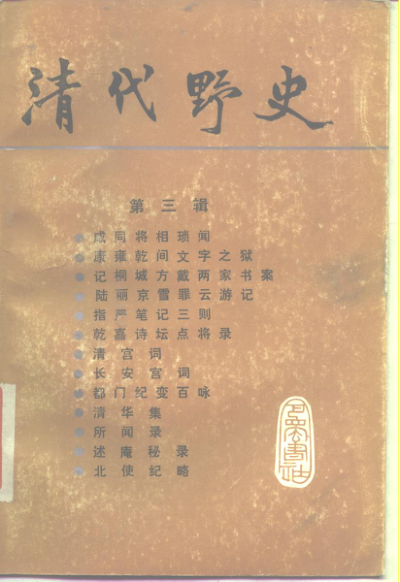 清代野史
第三辑
咸同将相琐闻
康雍乾间文字之狱
记桐城方戴两家书案
陆丽京雪罪云游记
指严笔记三则
乾嘉诗坛点将录
清宫词
长安宫词
都门纪变百咏
清华集
所闻录
述庵秘录
北使纪略
巴蜀书社